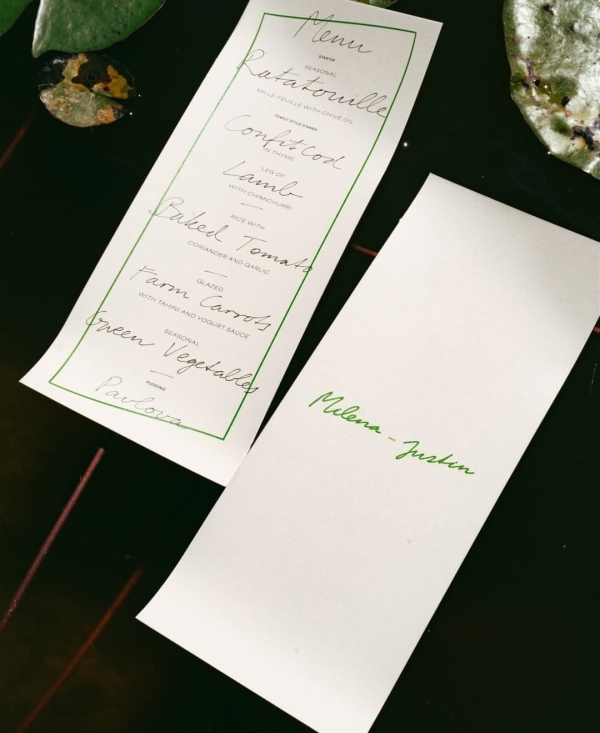 Menu
STARTER
SEASONAL
Ratatouille
MILLE-FEUILLE WITH CHIVE OIL
FAMILY STYLE DINNER
Confit Cod
IN THYME
LEG OF
Lamb
WITH CHIMICHURRI
RICE WITH
Baked Tomato
CORIANDER AND GARLIC
GLAZED
Farm Carrots
WITH TAHINI AND YOGURT SAUCE
SEASONAL
Green Vegetables
PUDDING
Pavlova
Milena - Justin